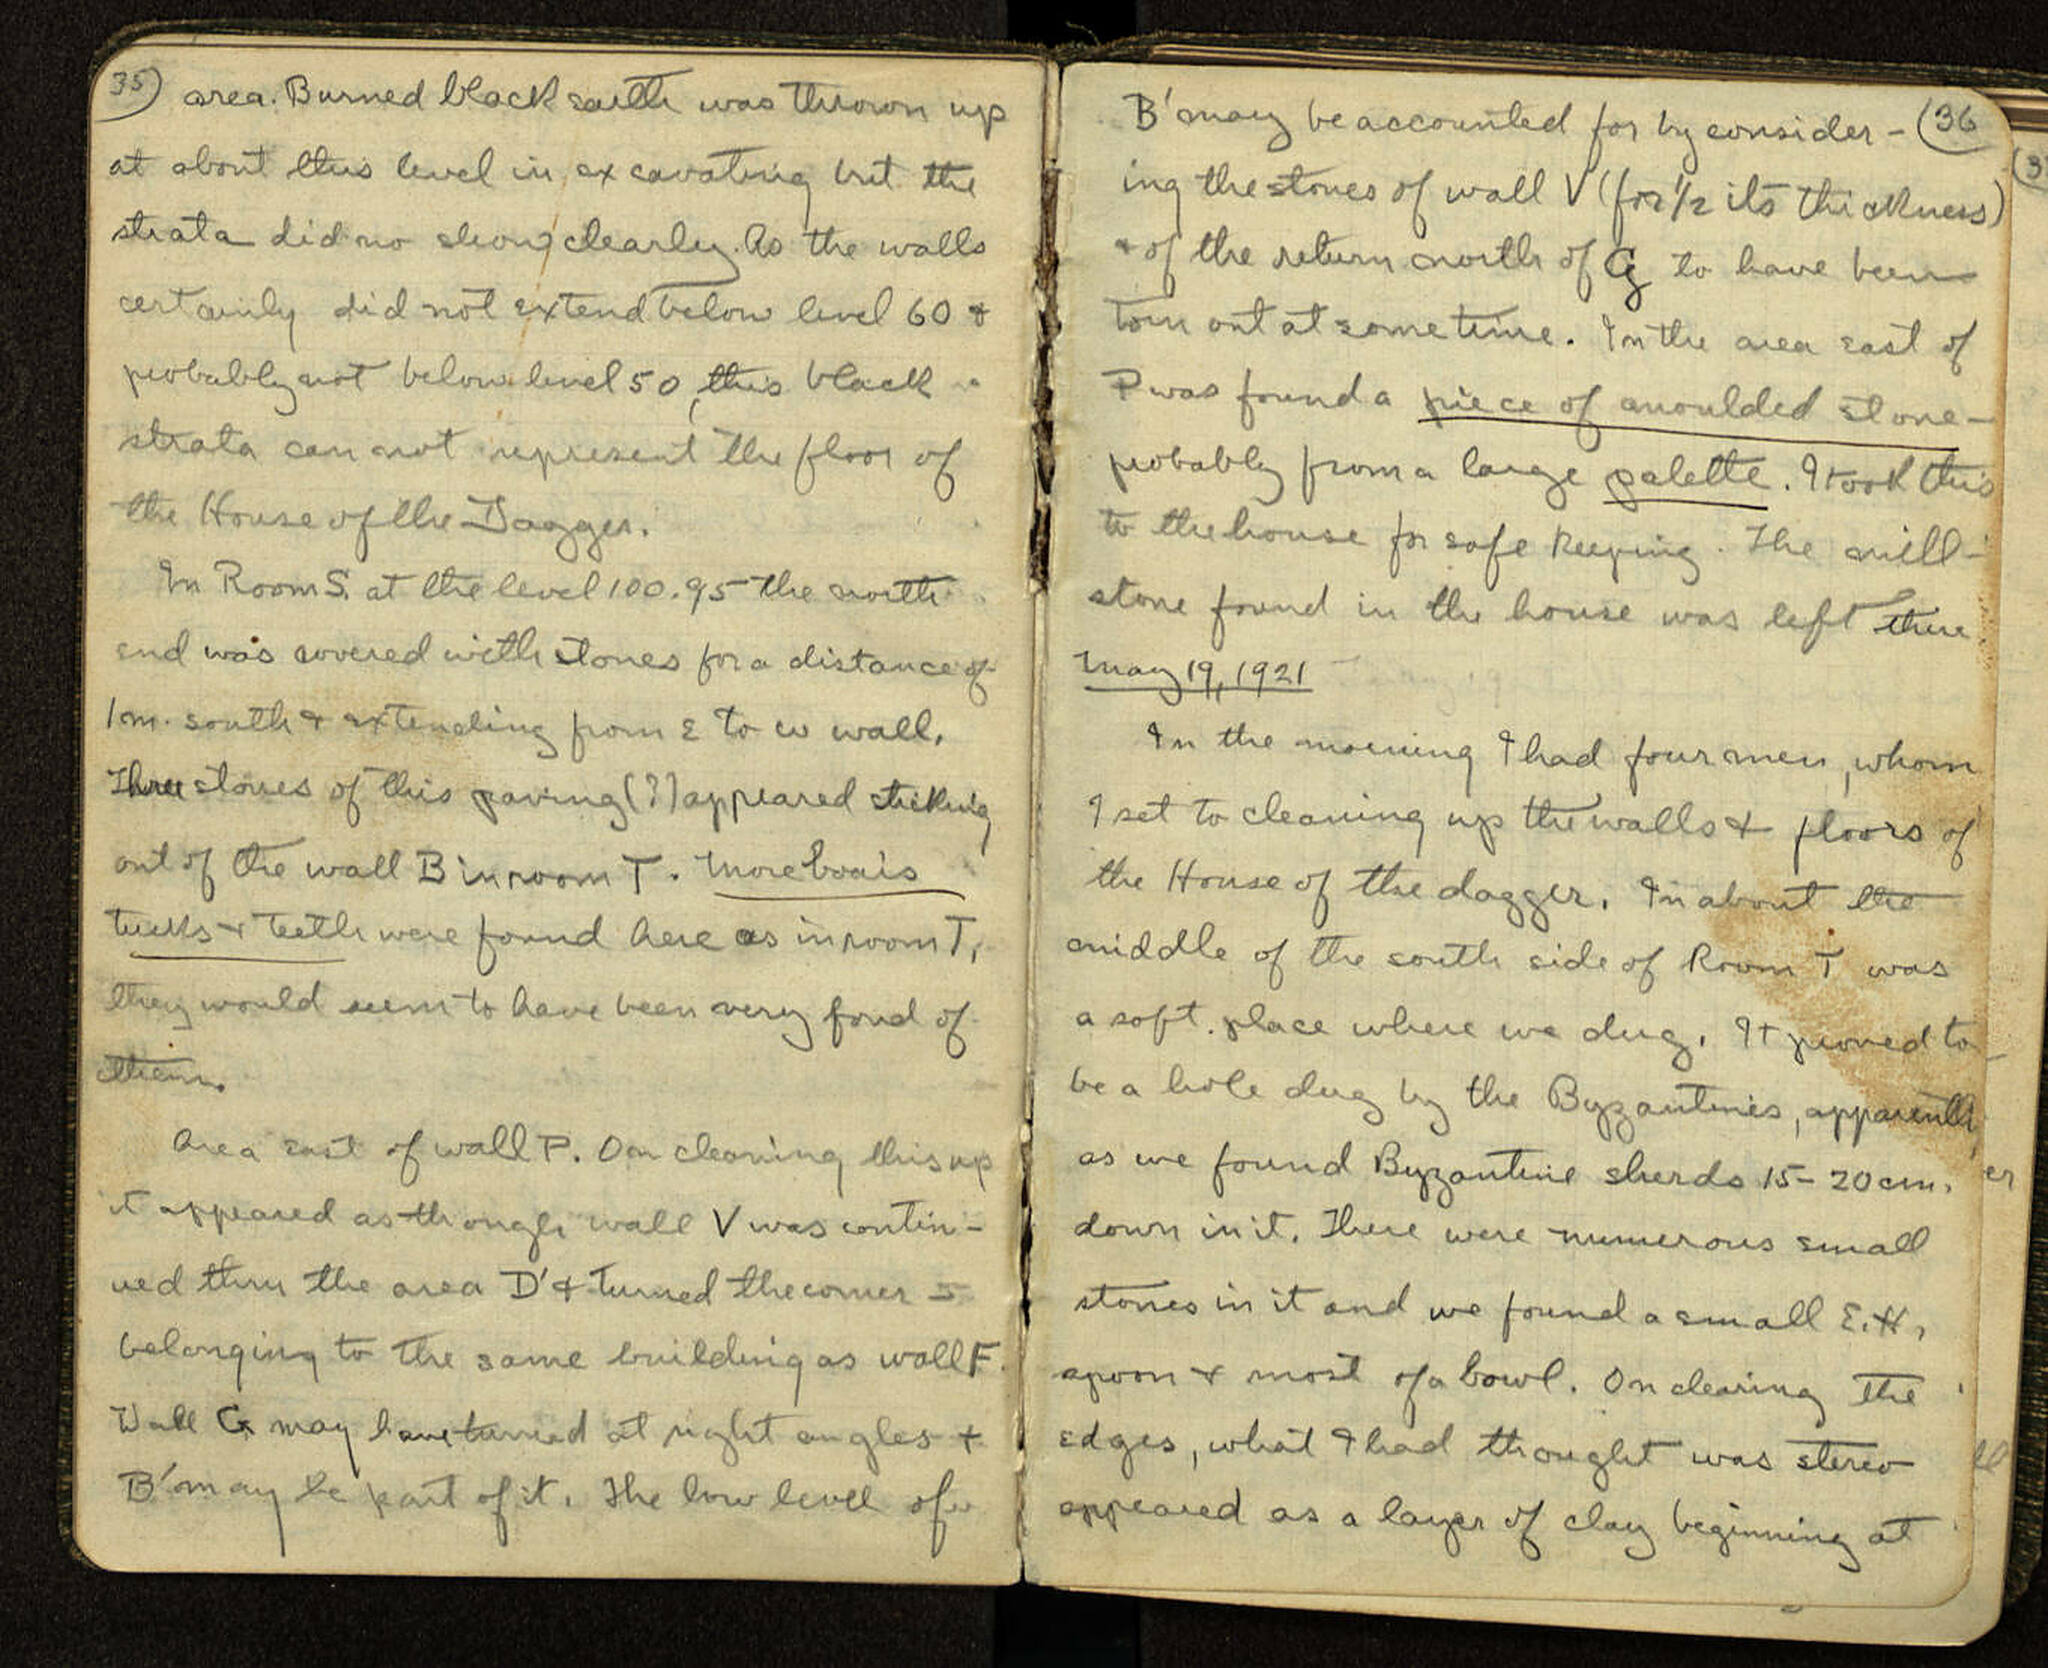 35) area. Burned black earth was thrown up
at about this level in excavating but the
strata did no show clearly. As the walls
certainly did not extend below level 60 &
probably not below level 50, this black
strata can not represent the floor of
the House of the Dagger.
In Room S. at the level 100.95 the north
end was covered with stones for a distance of
1 m. south & extending from E to W wall.
Three stones of this paving (?) appeared sticking
out of the wall B in room T. More boars
tusks & teeth were found here as in room T,
they would seem to have been very fond of
them.
Area east of wall P. On cleaning this up
it appeared as though wall V was contin-
ued thru the area D' & turned the corner =
belonging to the same building as wall F.
Wall G may have turned at right angles &
B' may be part of it. The low level of w
(36
B' may be accounted for by consider-
ing the stones of wall V (for 1/2 its thickness)
& of the return north of G to have been
torn out at some time. In the area east of
P was found a piece of moulded stone -
probably from a large palette. I took this
to the house for safe keeping. The mill-
stone found in the house was left there.
May 19, 1921
In the morning I had four men, whom
I set to cleaning up the walls & floors of
the House of the dagger. In about the
middle of the south side of Room T was
a soft place where we dug. It proved to
be a hole dug by the Byzantines, apparently
as we found Byzantine sherds 15-20 cm.
down in it. There were numerous small
stones in it and we found a small E.H.
spoon & most of a bowl. On clearing the
edges, what I had thought was stereo
appeared as a layer of clay beginning at